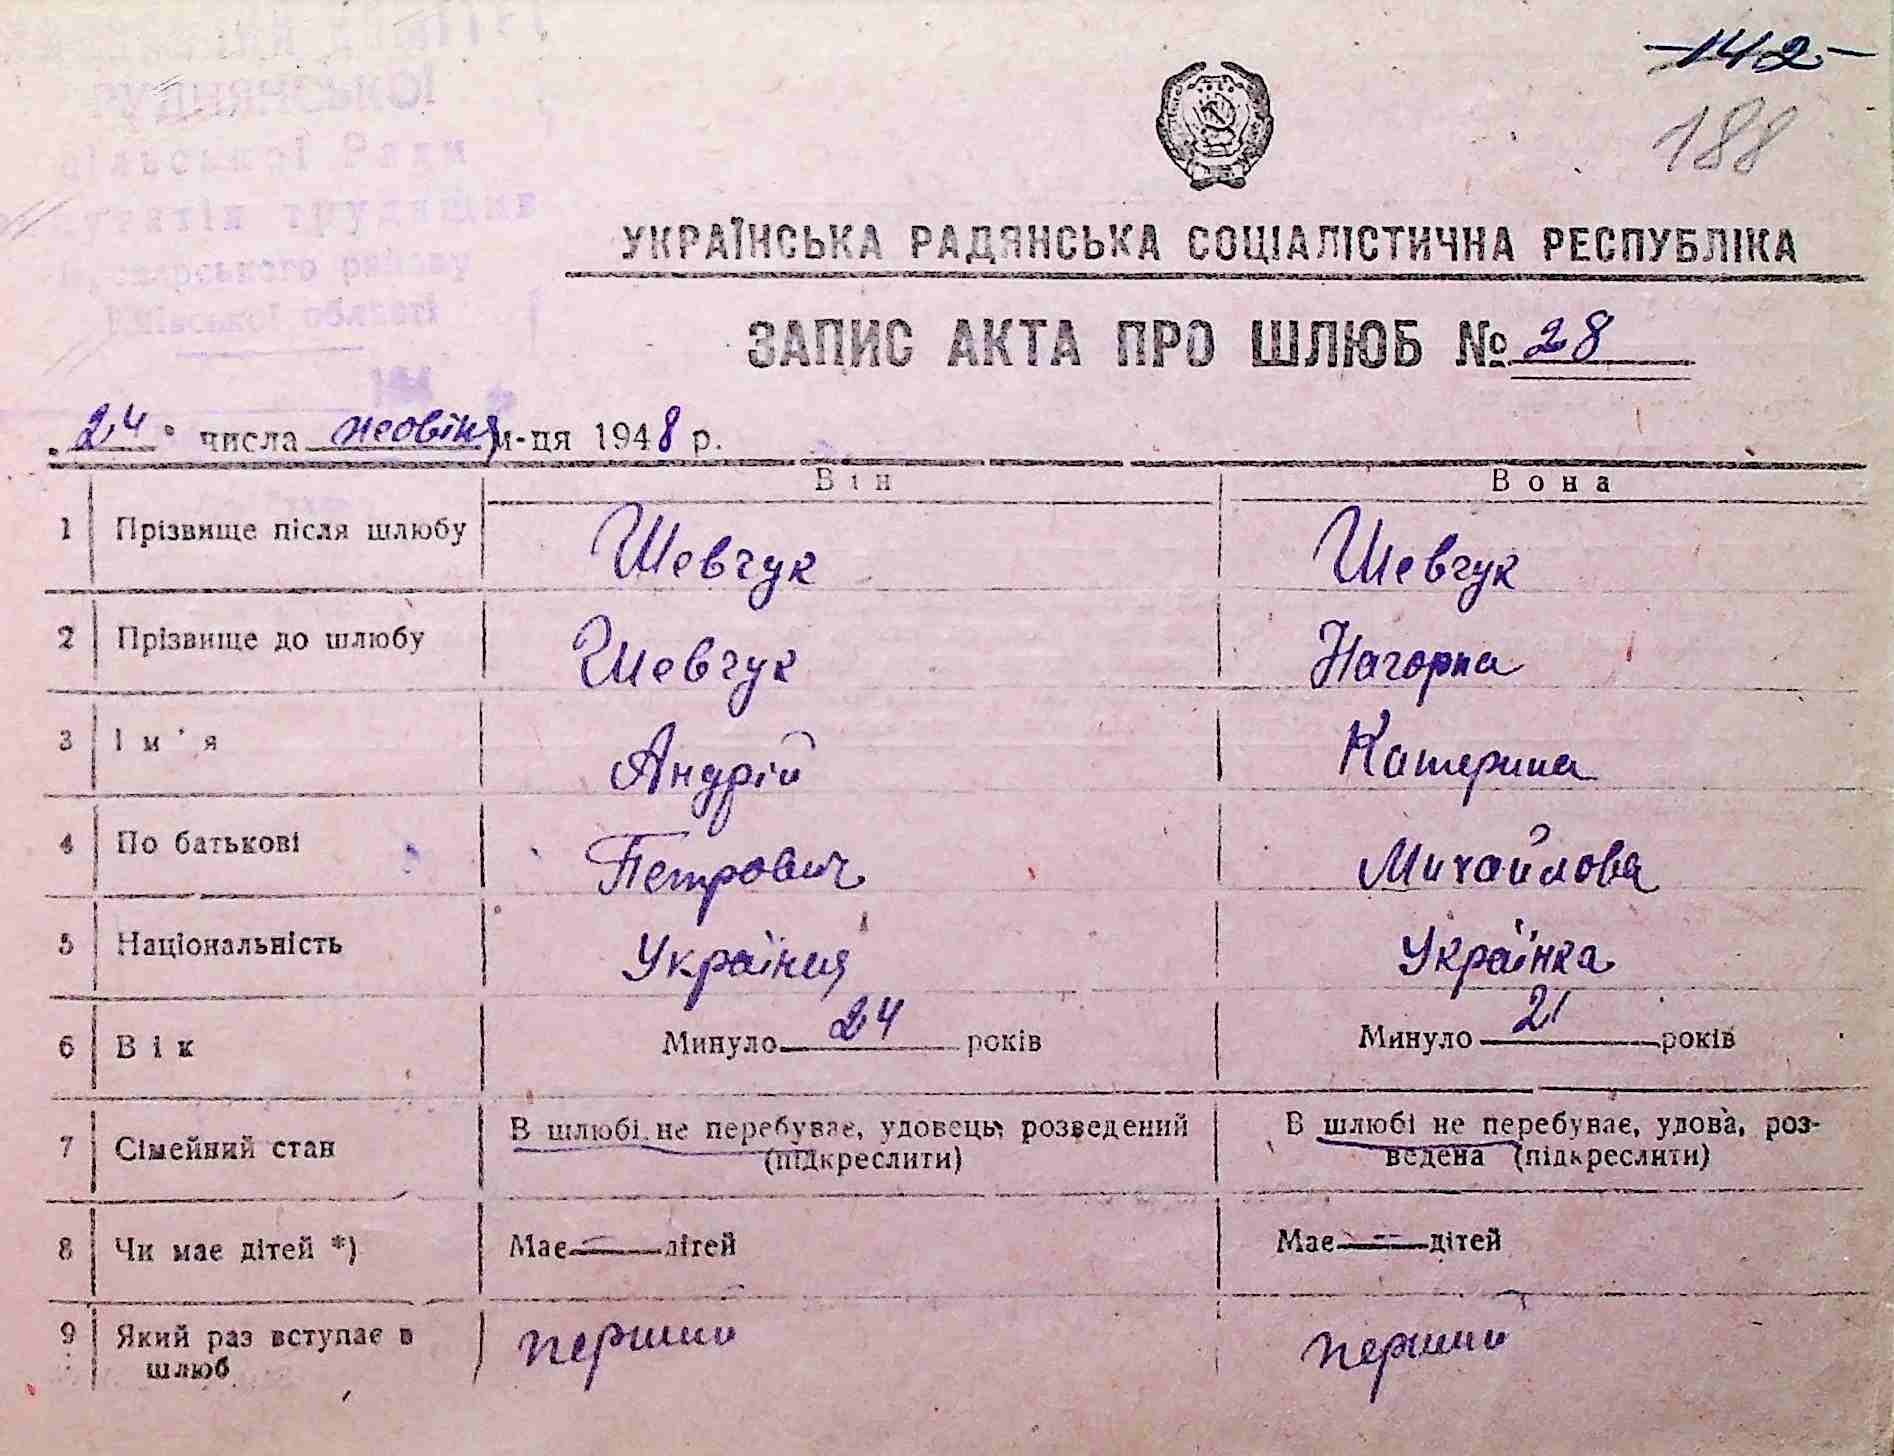 -142-
188
РУДНЯНСЬКОЇ
сільської Ради
депутатів трудящих
Броварського району
Київської області
194 р
УКРАЇНСЬКА РАДЯНСЬКА СОЦІАЛІСТИЧНА РЕСПУБЛІКА
ЗАПИС АКТА ПРО ШЛЮБ № 28
"24" числа жовтня м-ця 1948 р.
Він Вона
1 Прізвище після шлюбу Шевчук Шевчук
2 Прізвище до шлюбу Шевчук Нагорна
3 Ім'я Андрій Катерина
4 По батькові Петрович Михайлова
5 Національність Українця Українка
6 Вік Минуло 24 років Минуло 21 років
7 Сімейний стан В шлюбі не перебуває, удовець, розведений В шлюбі не перебуває, удова, роз-
(підкреслити) ведена (підкреслити)
8 Чи має дітей *) Має — дітей Має — дітей
9 Який раз вступає в перший перший
шлюб